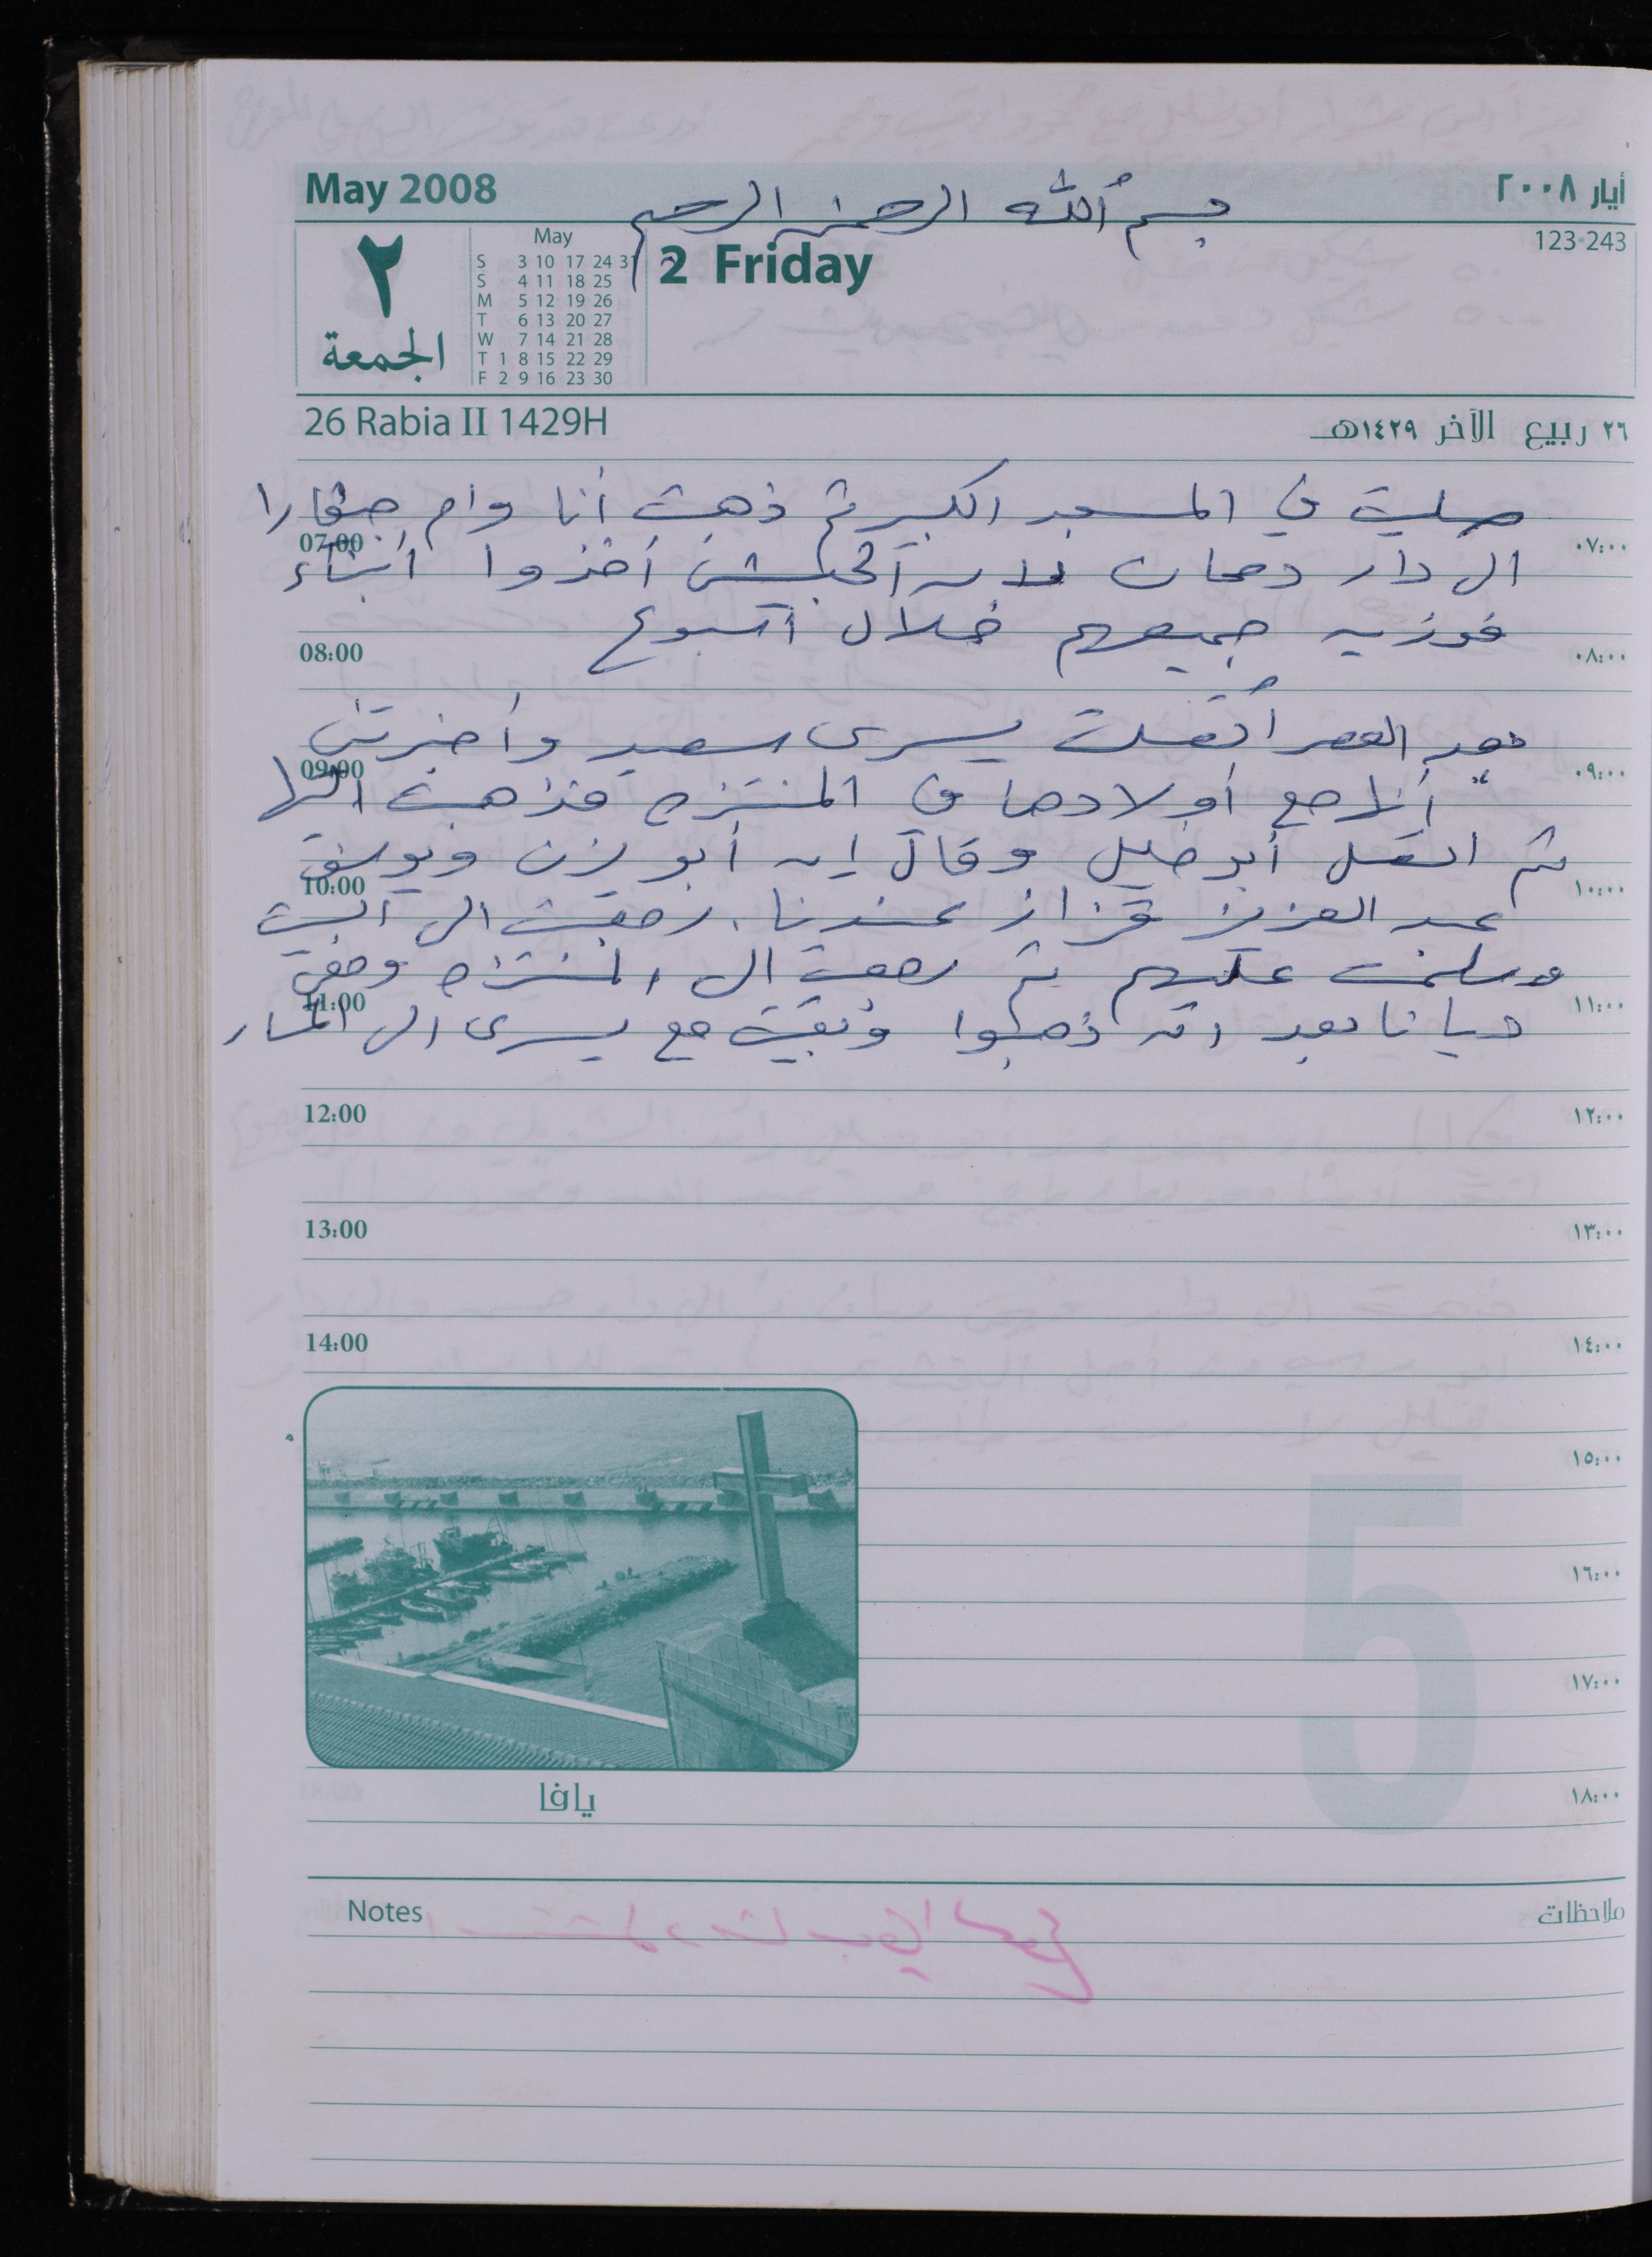 May 2008
أيار ٢٠٠٨
بسم الله الرحمن الرحيم
٢
الجمعة
May
S 3 10 17 24 31
S 4 11 18 25
M 5 12 19 26
T 6 13 20 27
W 7 14 21 28
T 1 8 15 22 29
F 2 9 16 23 30
2 Friday
123-243
26 Rabia II 1429H
٢٦ ربيع الآخر ١٤٢٩هـ
صليت في المسجد الكبير ثم ذهبت أنا وام
07:00 ٠٧:٠٠
الى دار دحان لان الجيش أخذوا أبناء
فوزيه جميعهم خلال أسبوع
08:00 ٠٨:٠٠
بعد العصر أتصلت يسرى سعيد وأخبرتني
09:00 ٠٩:٠٠
أنها مع أولادها في المنتزه فذهبت اليها
ثم اتصل أبو خليل وقال إن أبو يزن ويوسف
10:00 ١٠:٠٠
عبد العزيز قزاز عندنا. رجعت الى البيت
وسلمت عليهم ثم رجعت الى المنتزه ومعي
11:00 ١١:٠٠
ديانا بعد ان ذهبوا وبقيت مع يسرى الى المساء
12:00 ١٢:٠٠
13:00 ١٣:٠٠
14:00 ١٤:٠٠
١٥:٠٠
١٦:٠٠
١٧:٠٠
١٨:٠٠
5
يافا
Notes
ملاحظات